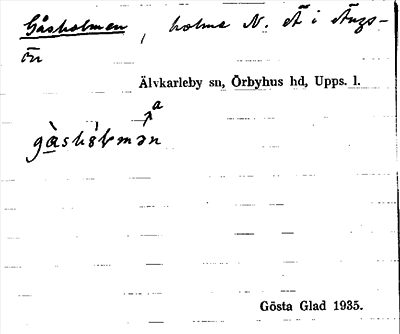 Gåsholmen, holme N. Ä i Ängs-
ön
Älvkarleby sn, Örbyhus hd, Upps. l.
a
gàshòlmən
Gösta Glad 1935.